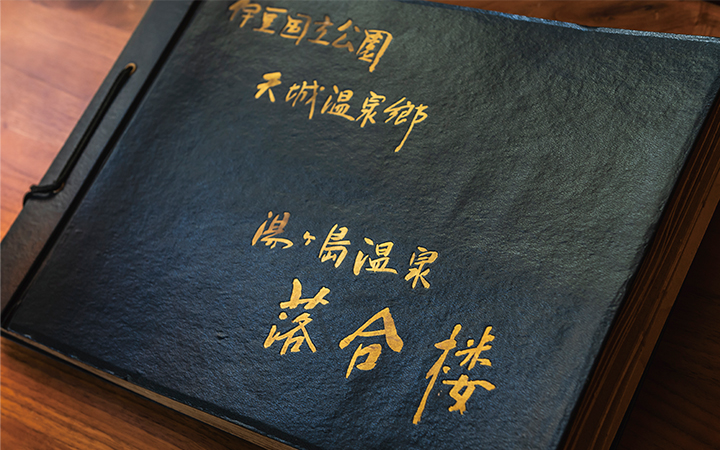 伊豆国立公園
天城温泉郷
湯ヶ島温泉
落合楼